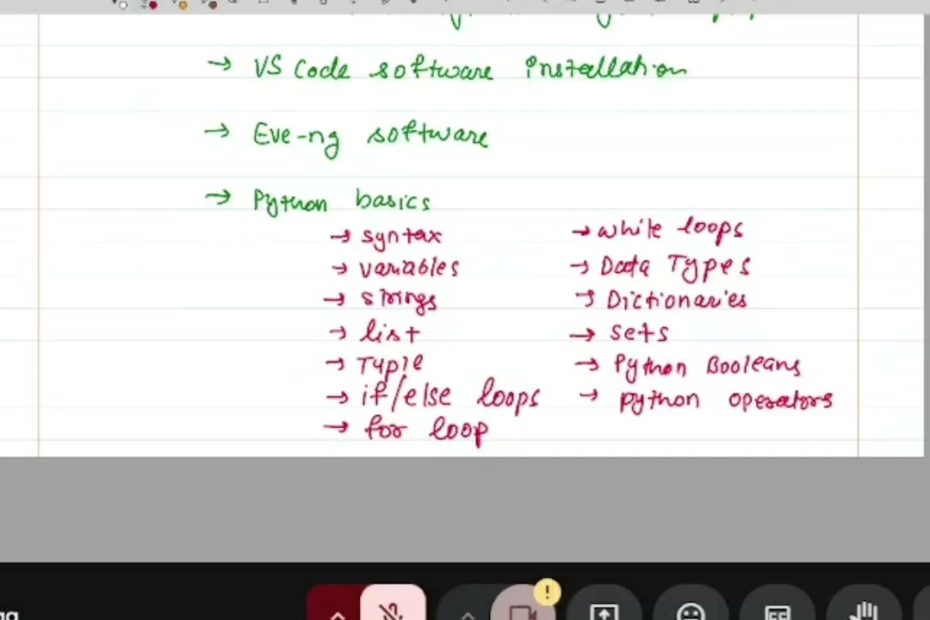 → VS Code software installation
→ Eve-ng software
→ Python basics
→ syntax
→ variables
→ strings
→ list
→ Typle
→ if/else loops
→ for loop
→ while loops
→ Data Types
→ Dictionaries
→ sets
→ Python Booleans
→ python operators